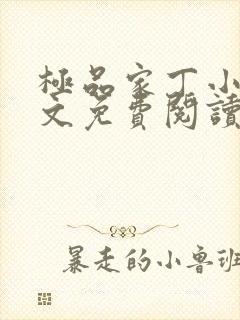 極品家丁小
文免費閱讀
暴走的小鲁班